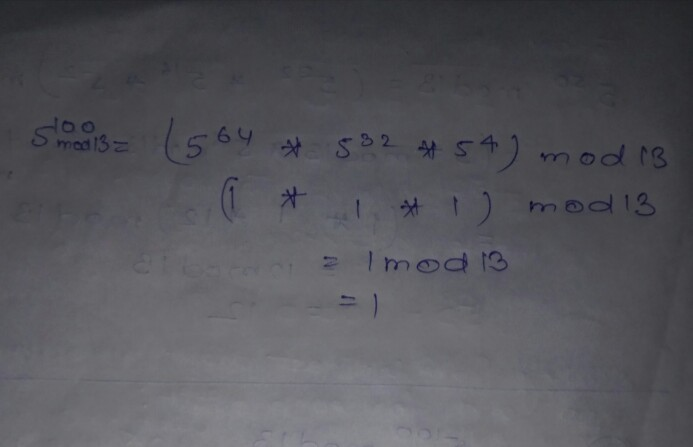 5^100 mod 13 = (5^64 * 5^32 * 5^4) mod 13
(1 * 1 * 1) mod 13
= 1 mod 13
= 1